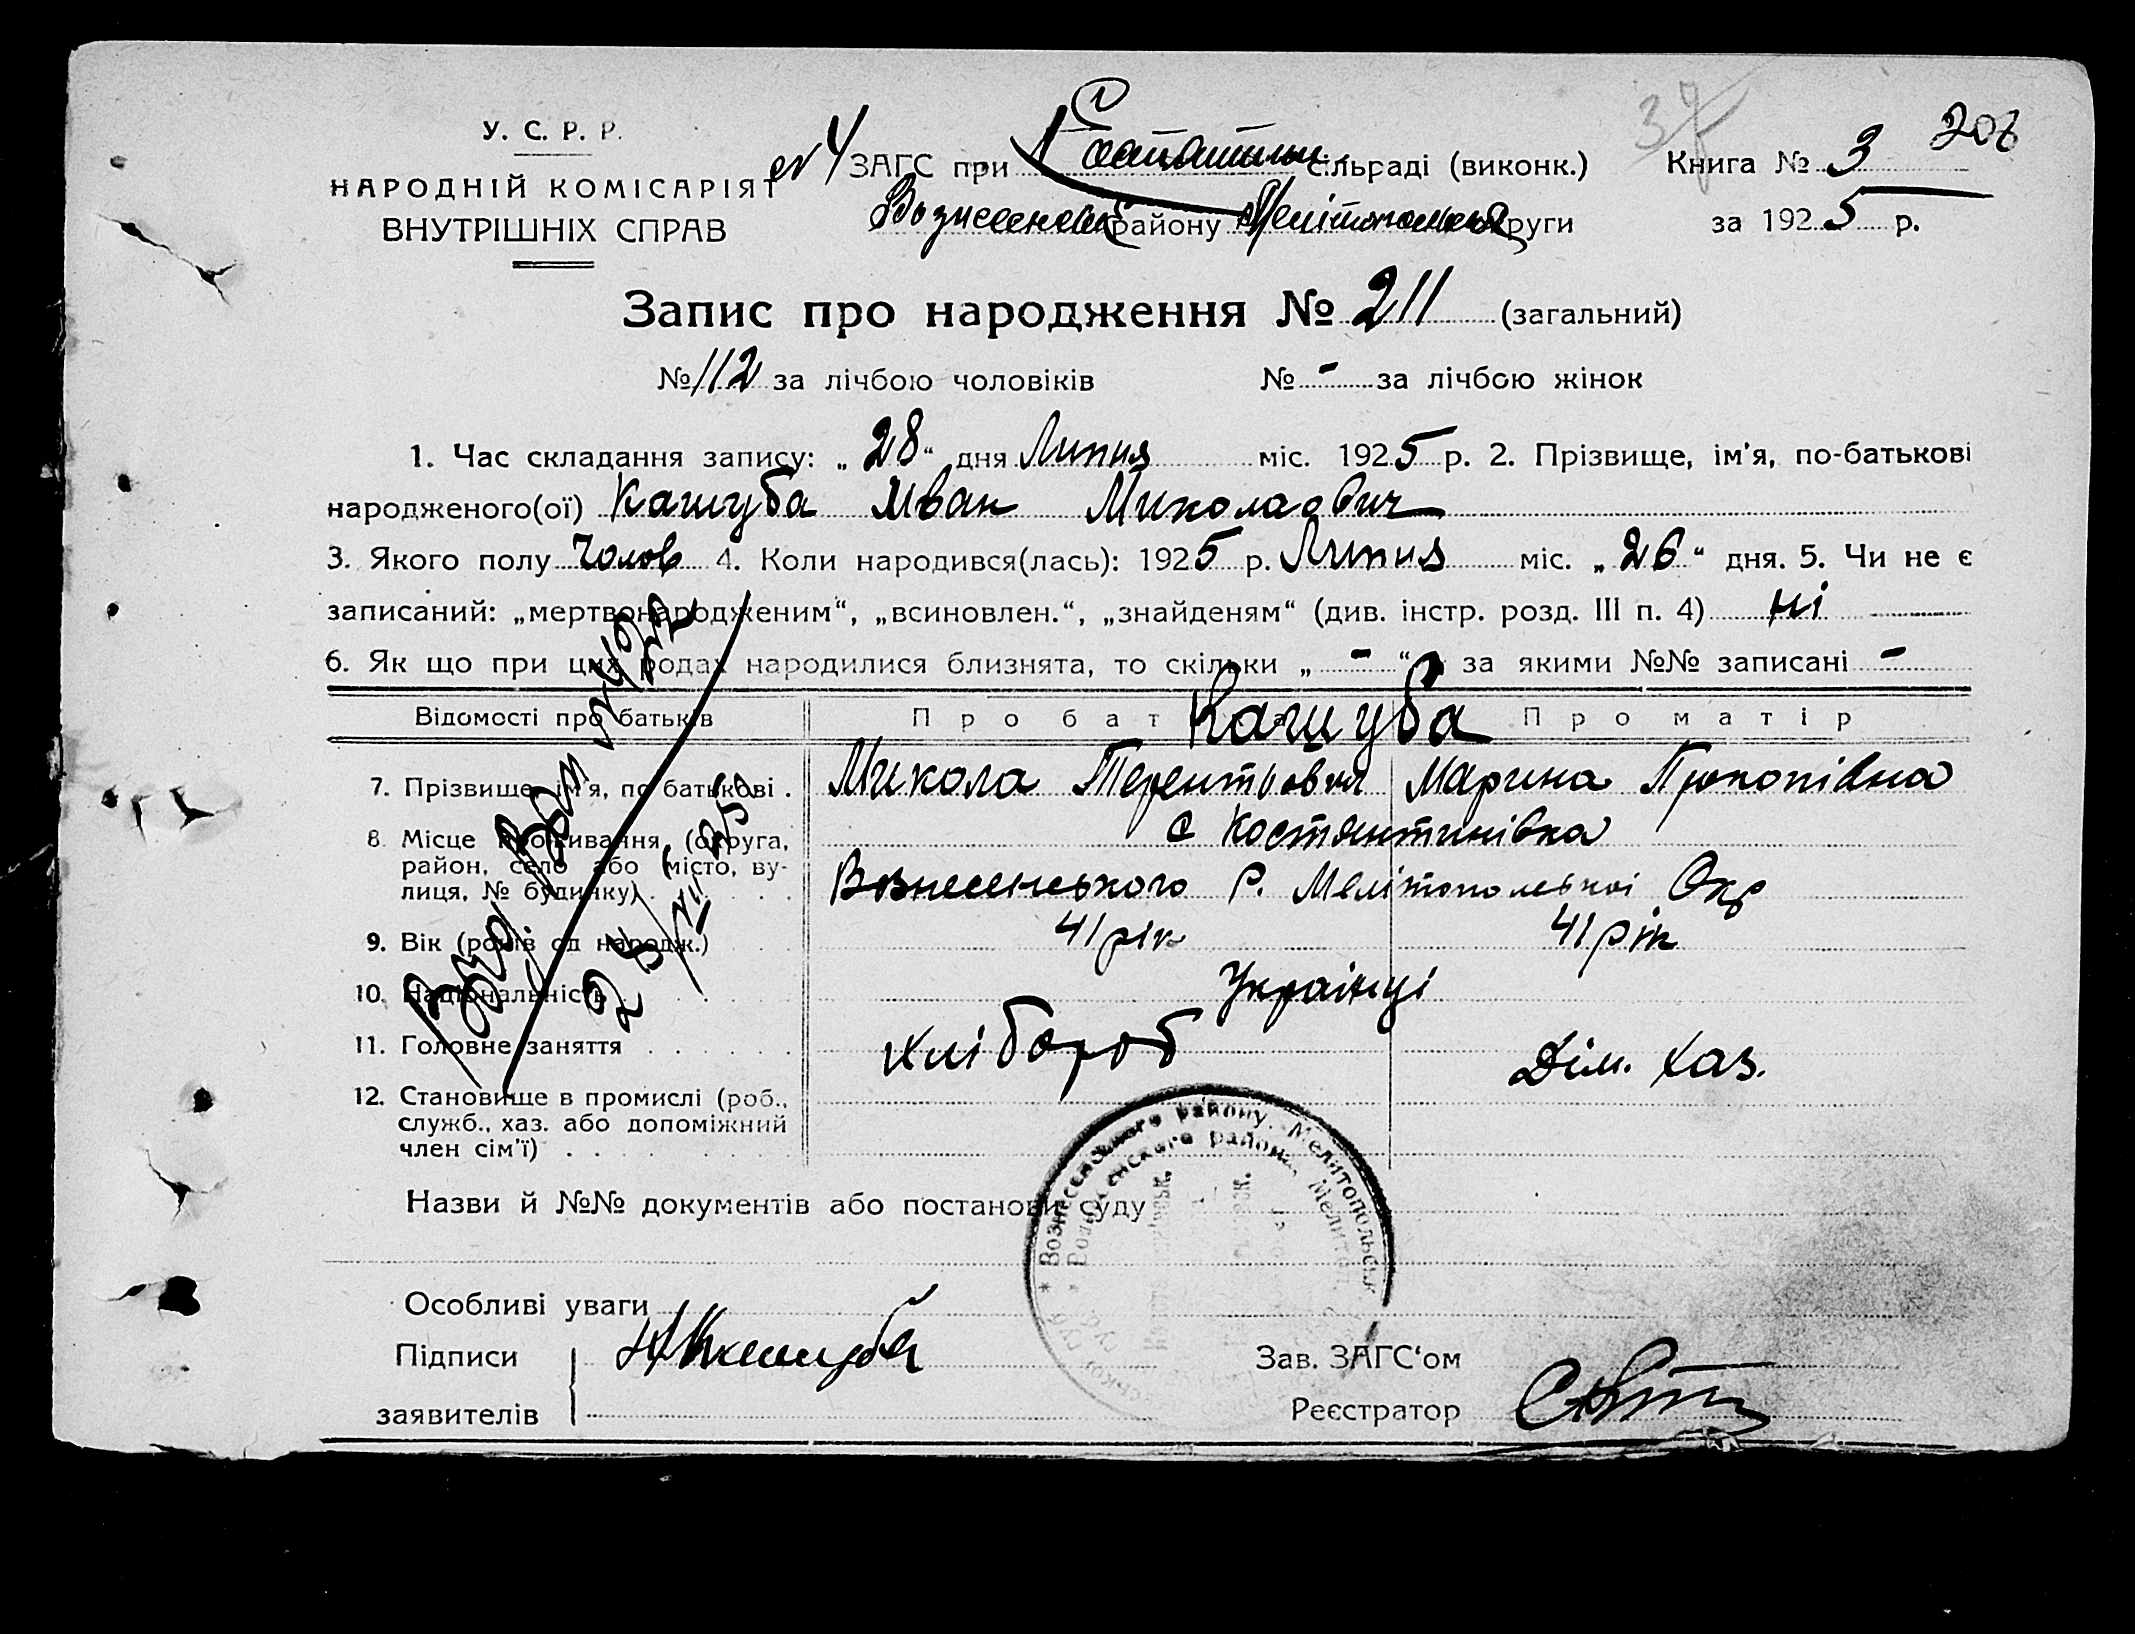 206
У. С. Р. Р.
НАРОДНІЙ КОМІСАРІЯТ
ВНУТРІШНІХ СПРАВ
№ 4 ЗАГС при сільраді (виконк.) Книга № 3
району Мелітопольськ округи за 1925 р.
Запис про народження № 211 (загальний)
№ 112 за лічбою чоловіків № - за лічбою жінок
1. Час складання запису: „28“ дня Липня міс. 1925 р. 2. Прізвище, ім'я, по-батькові
народженого(ої) Кашуба Иван Миколаович
3. Якого полу Чолов 4. Коли народився(лась): 1925 р. Липня міс. „26“ дня. 5. Чи не є
записаний: „мертвонародженим“, „всиновлен.“, „знайденям“ (див. інстр. розд. III п. 4) ні
6. Як що при цих родах народилися близнята, то скільки „ - “ за якими №№ записані -
Відомості про батьків Про бат Про матір
Кашуба
7. Прізвище, ім'я, по батькові. Микола Терентьович Марина Прокопівна
8. Місце проживання, (округа, район, село або місто, вулиця, № будинку) с Костянтинівка
Вознесенського Р. Мелітопольскоі Окр
9. Вік (років од народж.) 41 рік 41 рік
10. Національність Українці
11. Головне заняття хлібороб Дом. хаз.
12. Становище в промислі (роб.,
служб., хаз. або допоміжний
член сім'ї)
Назви й №№ документів або постанови суду
Вознесенського району, Мелитопольськ
Вознесенского района, Мелитоп
Особливі уваги
Підписи Н Кашуба Зав. ЗАГС‘ом
заявителів Реєстратор